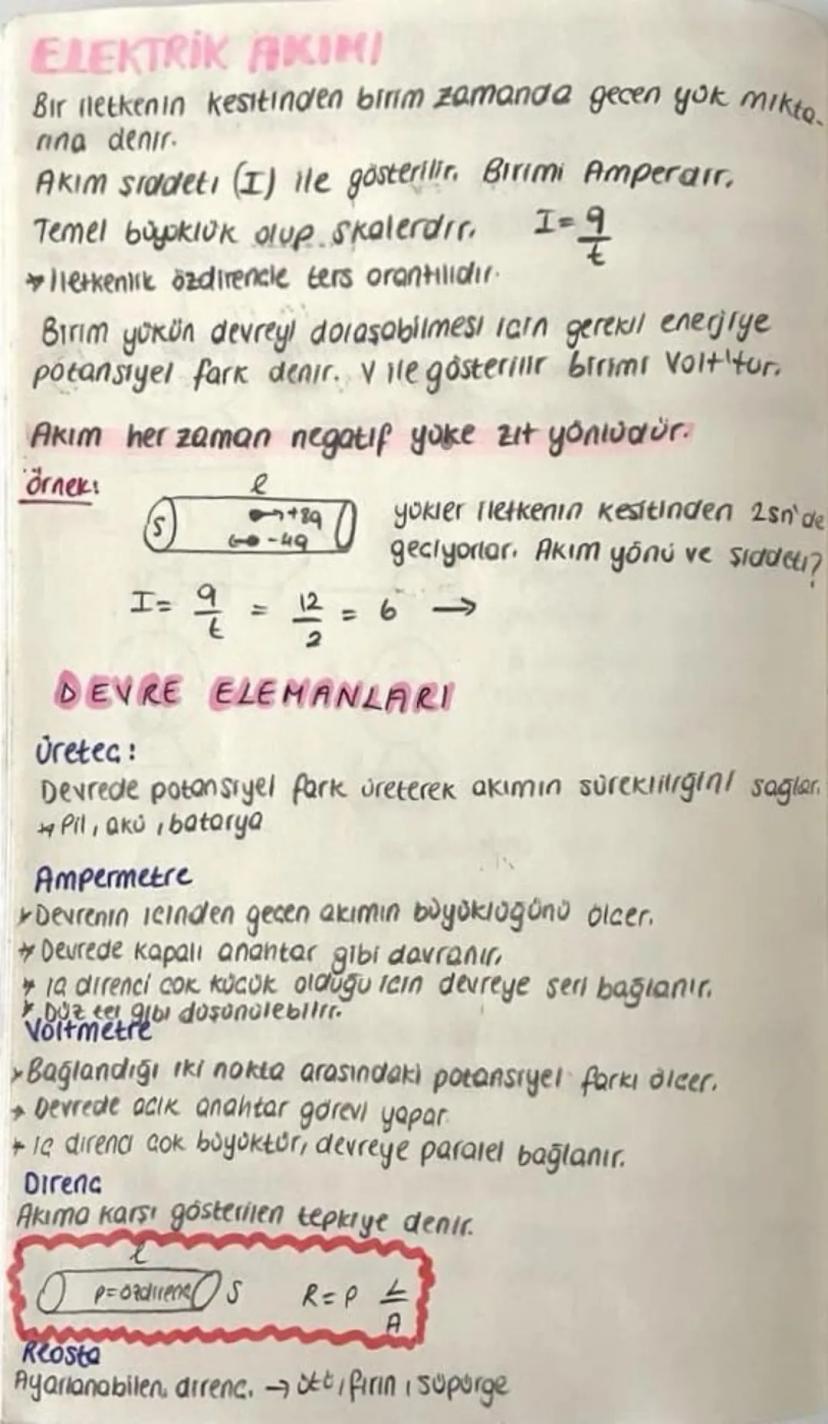 ELEKTRİK AKIMI
Bir iletkenin kesitinden birim zamanda geçen yük mikta-
rına denir.
Akım şiddeti (I) ile gösterilir. Birimi Amperdir.
Temel büyüklük olup skalerdir. I = q/t
→ İletkenlik özdirençle ters orantılıdır.
Birim yükün devreyi dolaşabilmesi için gerekli enerjiye
potansiyel fark denir. V ile gösterilir birimi Volt'tur.
Akım her zaman negatif yüke zıt yönlüdür.
Örnek:
l
S +8q
-4q
yükler iletkenin kesitinden 2sn'de
geçiyorlar. Akım yönü ve şiddeti?
I = q/t = 12/2 = 6 →
DEVRE ELEMANLARI
Üreteç:
Devrede potansiyel fark üreterek akımın sürekliliğini sağlar.
↪ Pil, akü, batarya
Ampermetre
→ Devrenin içinden geçen akımın büyüklüğünü ölçer.
→ Devrede kapalı anahtar gibi davranır.
→ İç direnci çok küçük olduğu için devreye seri bağlanır.
→ Düz tel gibi düşünülebilir.
Voltmetre
→ Bağlandığı iki nokta arasındaki potansiyel farkı ölçer.
→ Devrede açık anahtar görevi yapar
→ İç direnci çok büyüktür, devreye paralel bağlanır.
Direnç
Akıma karşı gösterilen tepkiye denir.
l
ρ=özdirenç S R = ρ L/A
Reosta
Ayarlanabilen direnç. → ütü, fırın, süpürge